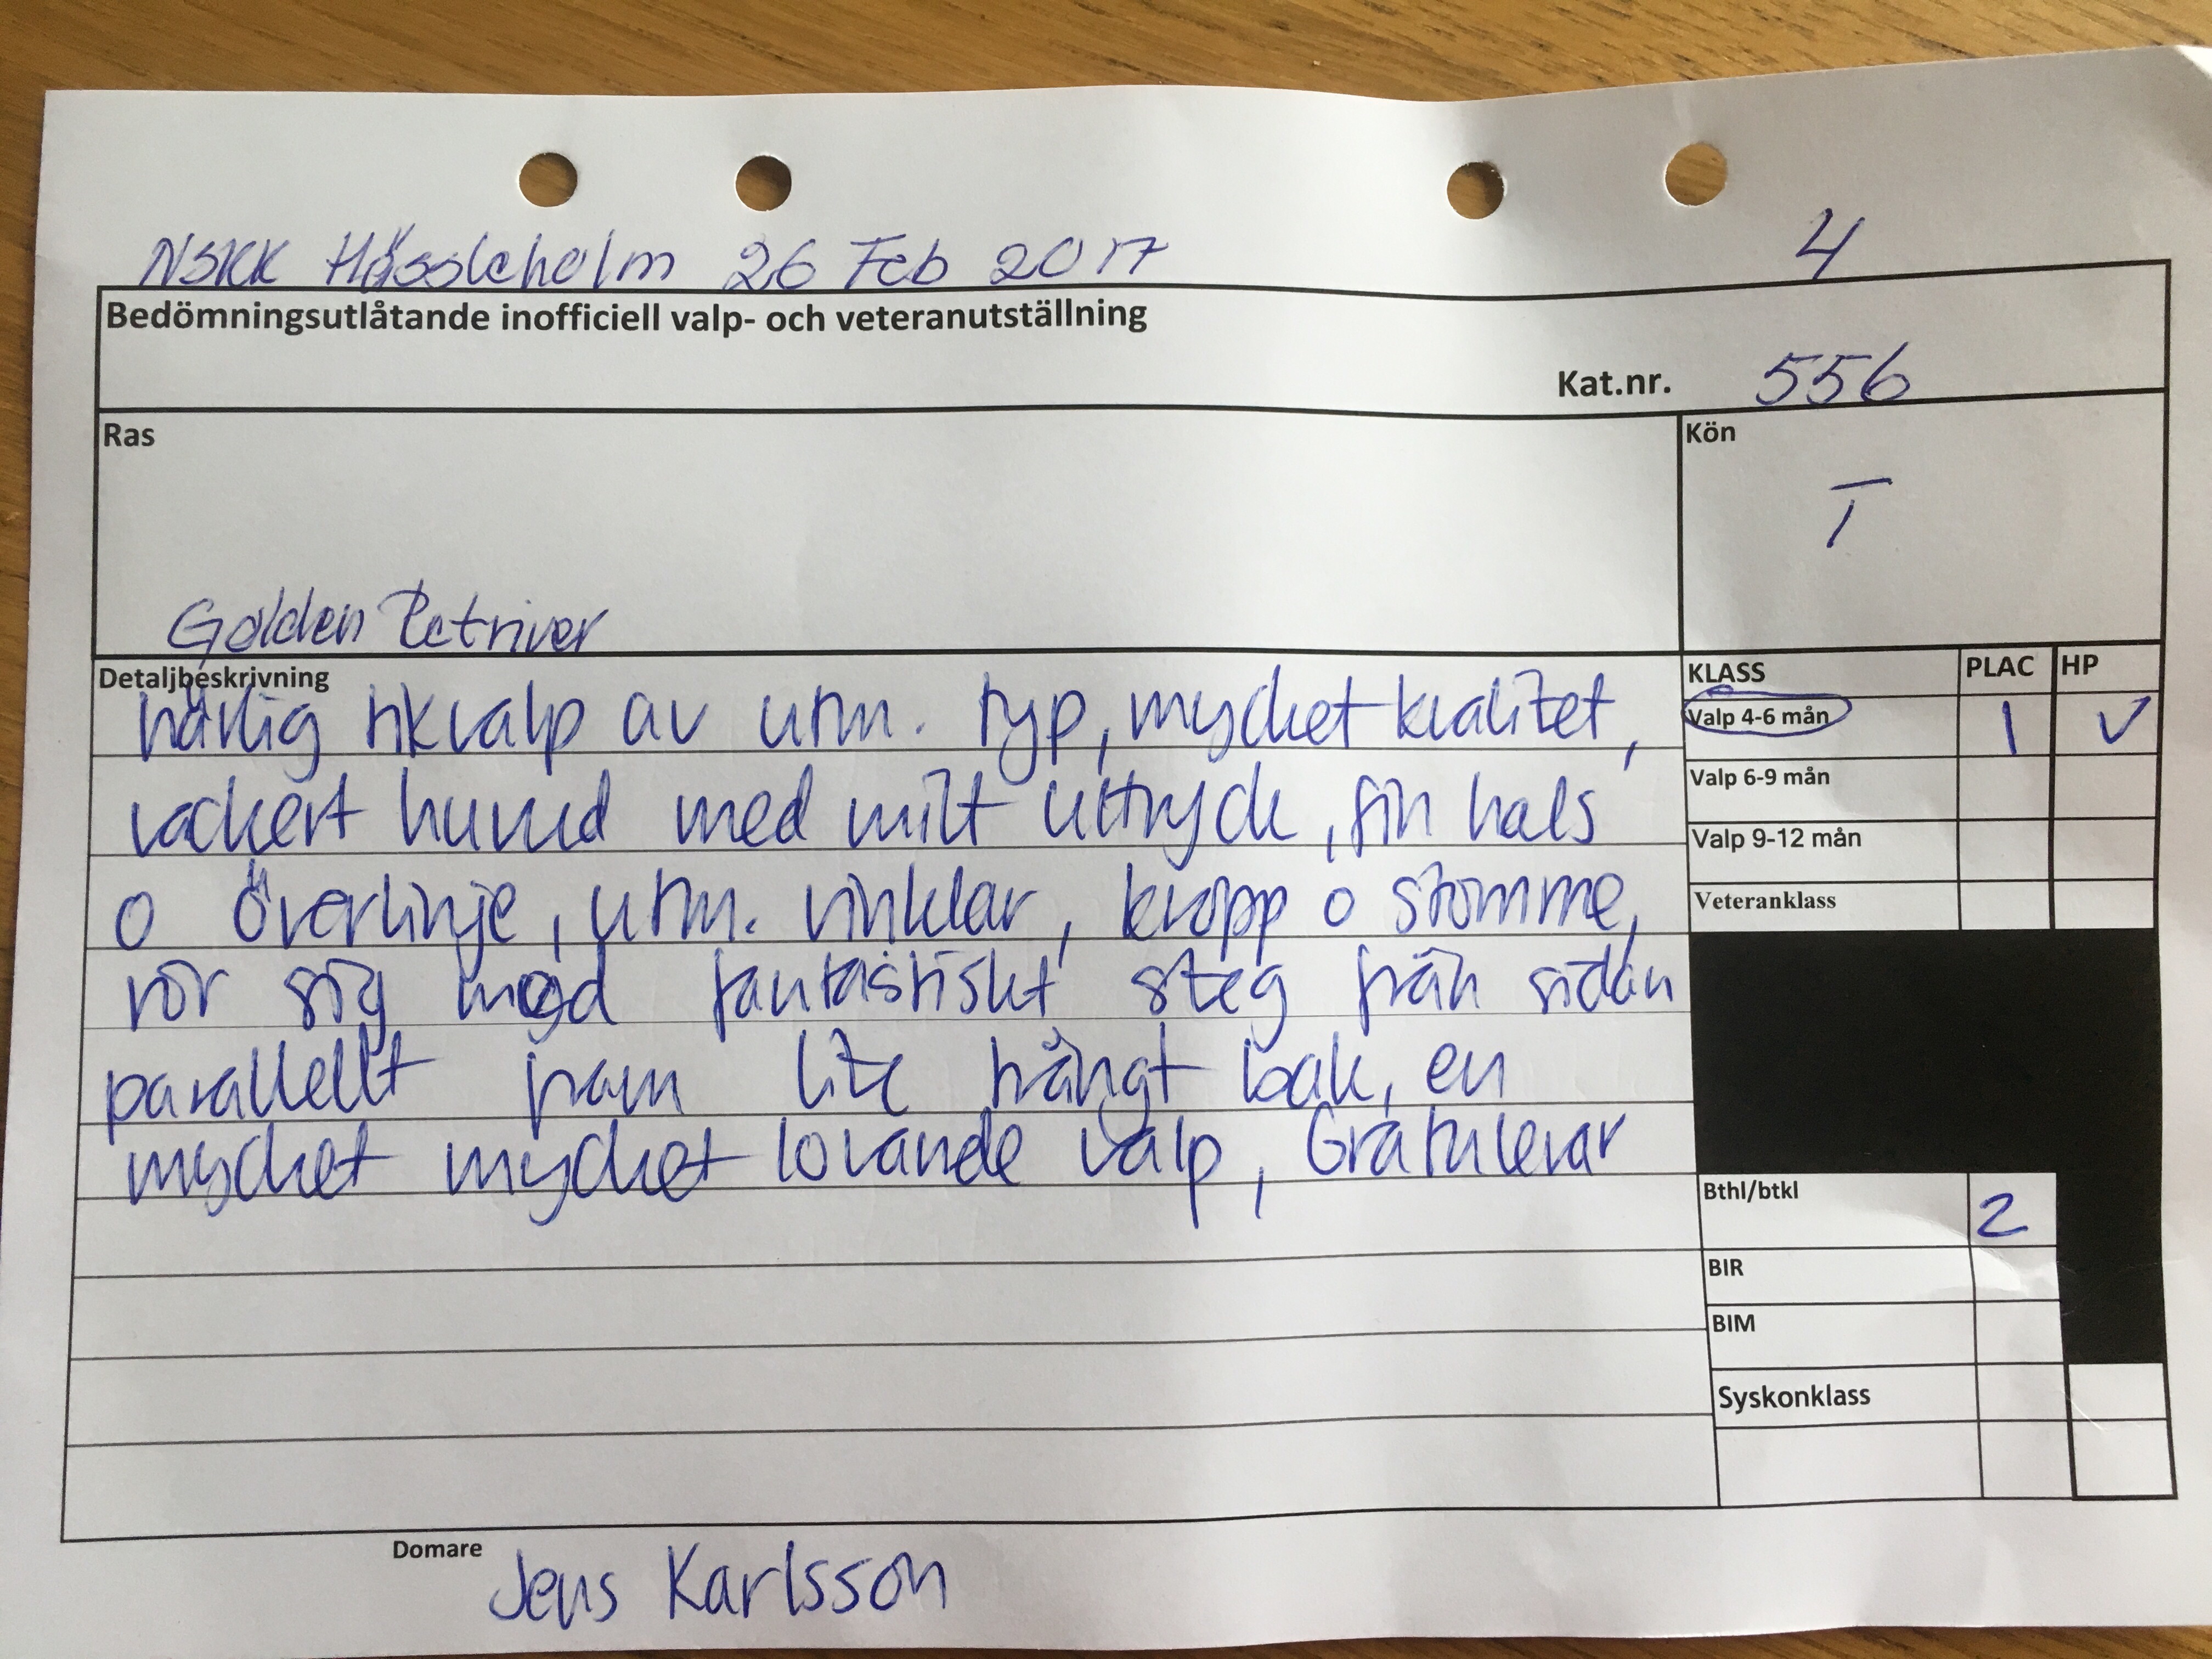 NSKK Hässleholm 26 Feb 2017 4
Bedömningsutlåtande inofficiell valp- och veteranutställning
Kat.nr. 556
Ras
Kön
T
Golden Retriver
Detaljbeskrivning
KLASS PLAC HP
härlig tikvalp av utm. typ, mycket kvalitet,
Valp 4-6 mån 1 ✓
vackert huvud med milt uttryck, fin hals
Valp 6-9 mån
Valp 9-12 mån
o överlinje, utm. vinklar, kropp o stomme,
Veteranklass
rör sig med fantastiskt steg från sidan
parallellt fram lite trångt bak, en
mycket mycket lovande valp, Gratulerar
Bthl/btkl 2
BIR
BIM
Syskonklass
Domare Jens Karlsson